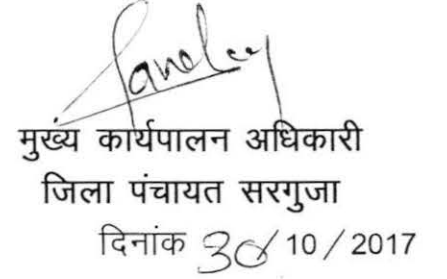 मुख्य कार्यपालन अधिकारी
जिला पंचायत सरगुजा
दिनांक 30/10/2017